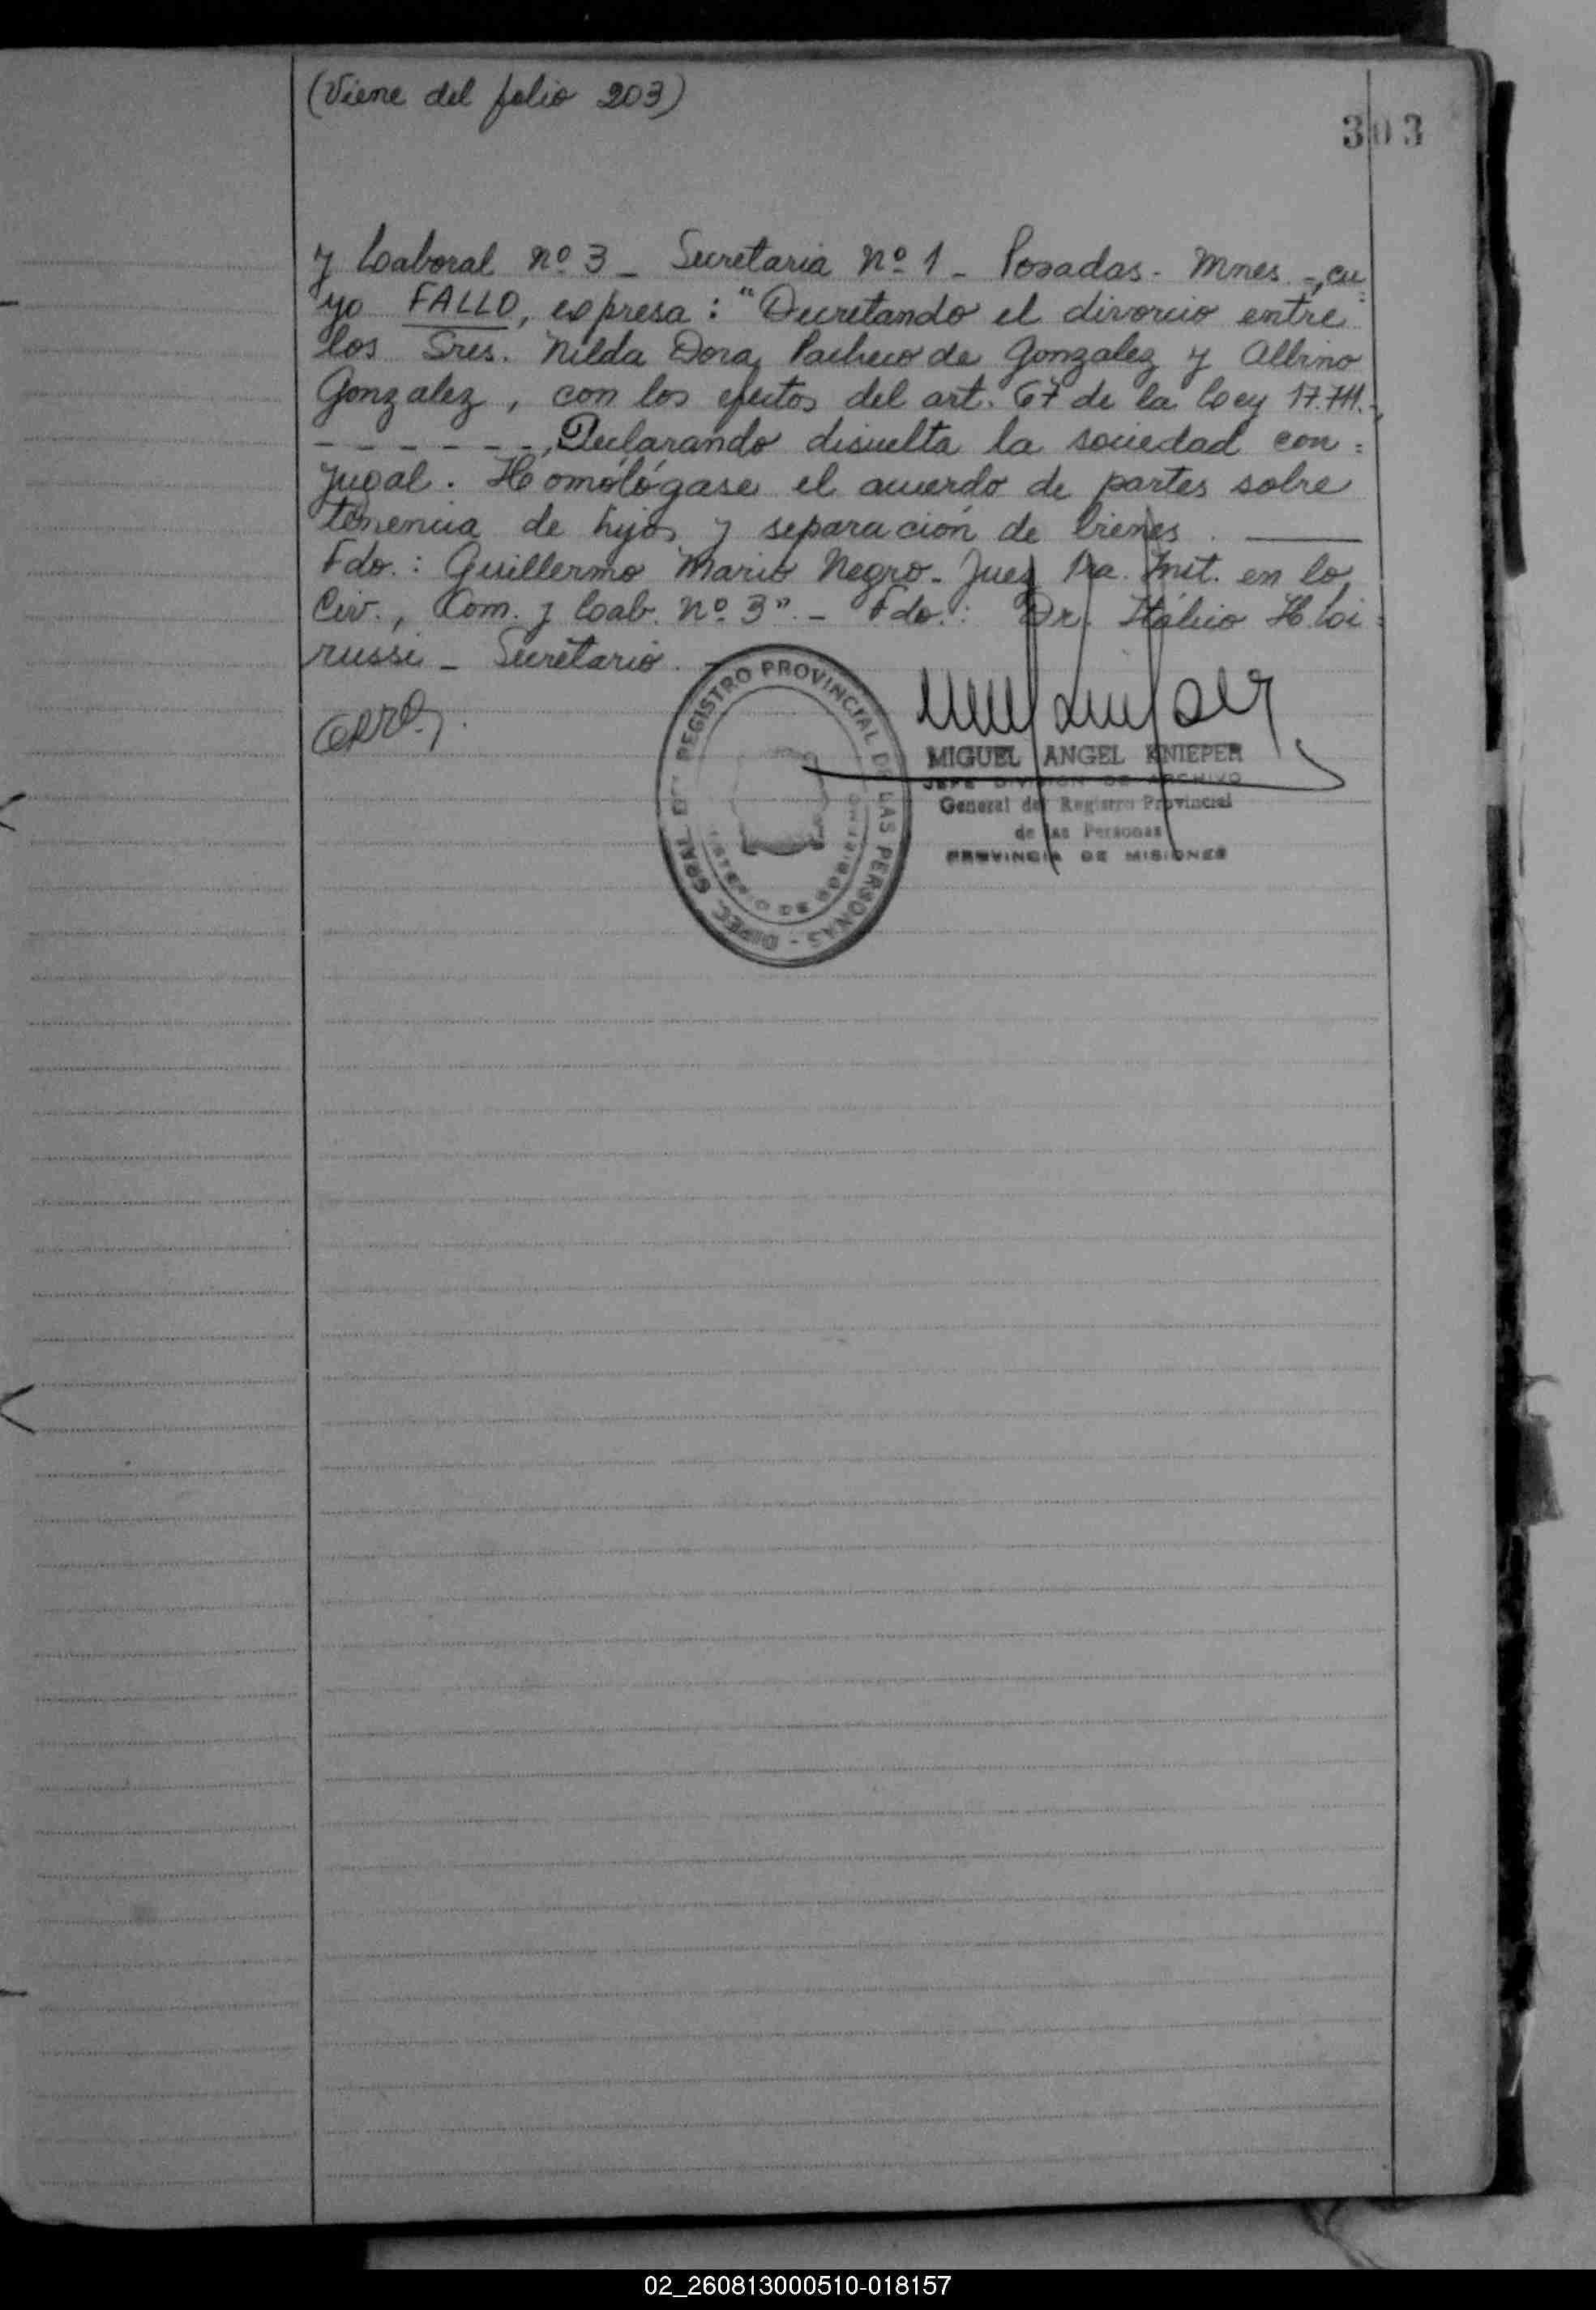 (Viene del folio 203)
303
y Laboral nº 3 - Secretaria nº 1 - Posadas - Mnes -, cu=
yo FALLO, expresa: "Decretando el divorcio entre
los Sres. Nilda Dora Pacheco de Gonzalez y Albino
Gonzalez, con los efectos del art. 67 de la Ley 17.711.-,
- - - - - -, Declarando disuelta la sociedad con=
yugal. Homológase el acuerdo de partes sobre
tenencia de hijos y separación de bienes.
Fdo.: Guillermo Mario Negro - Juez 1ra. Inst. en lo
Civ., Com. y Lab. nº 3" - Fdo.: Dr. Itálico H.
- Secretario. -
REGISTRO PROVINCIAL DE LAS PERSONAS - DIREC. GRAL. DEL
MINISTERIO DE GOBIERNO
MIGUEL ANGEL KNIEPER
JEFE DIVISION DE ARCHIVO
General del Registro Provincial
de las Personas
PROVINCIA DE MISIONES
02_260813000510-018157